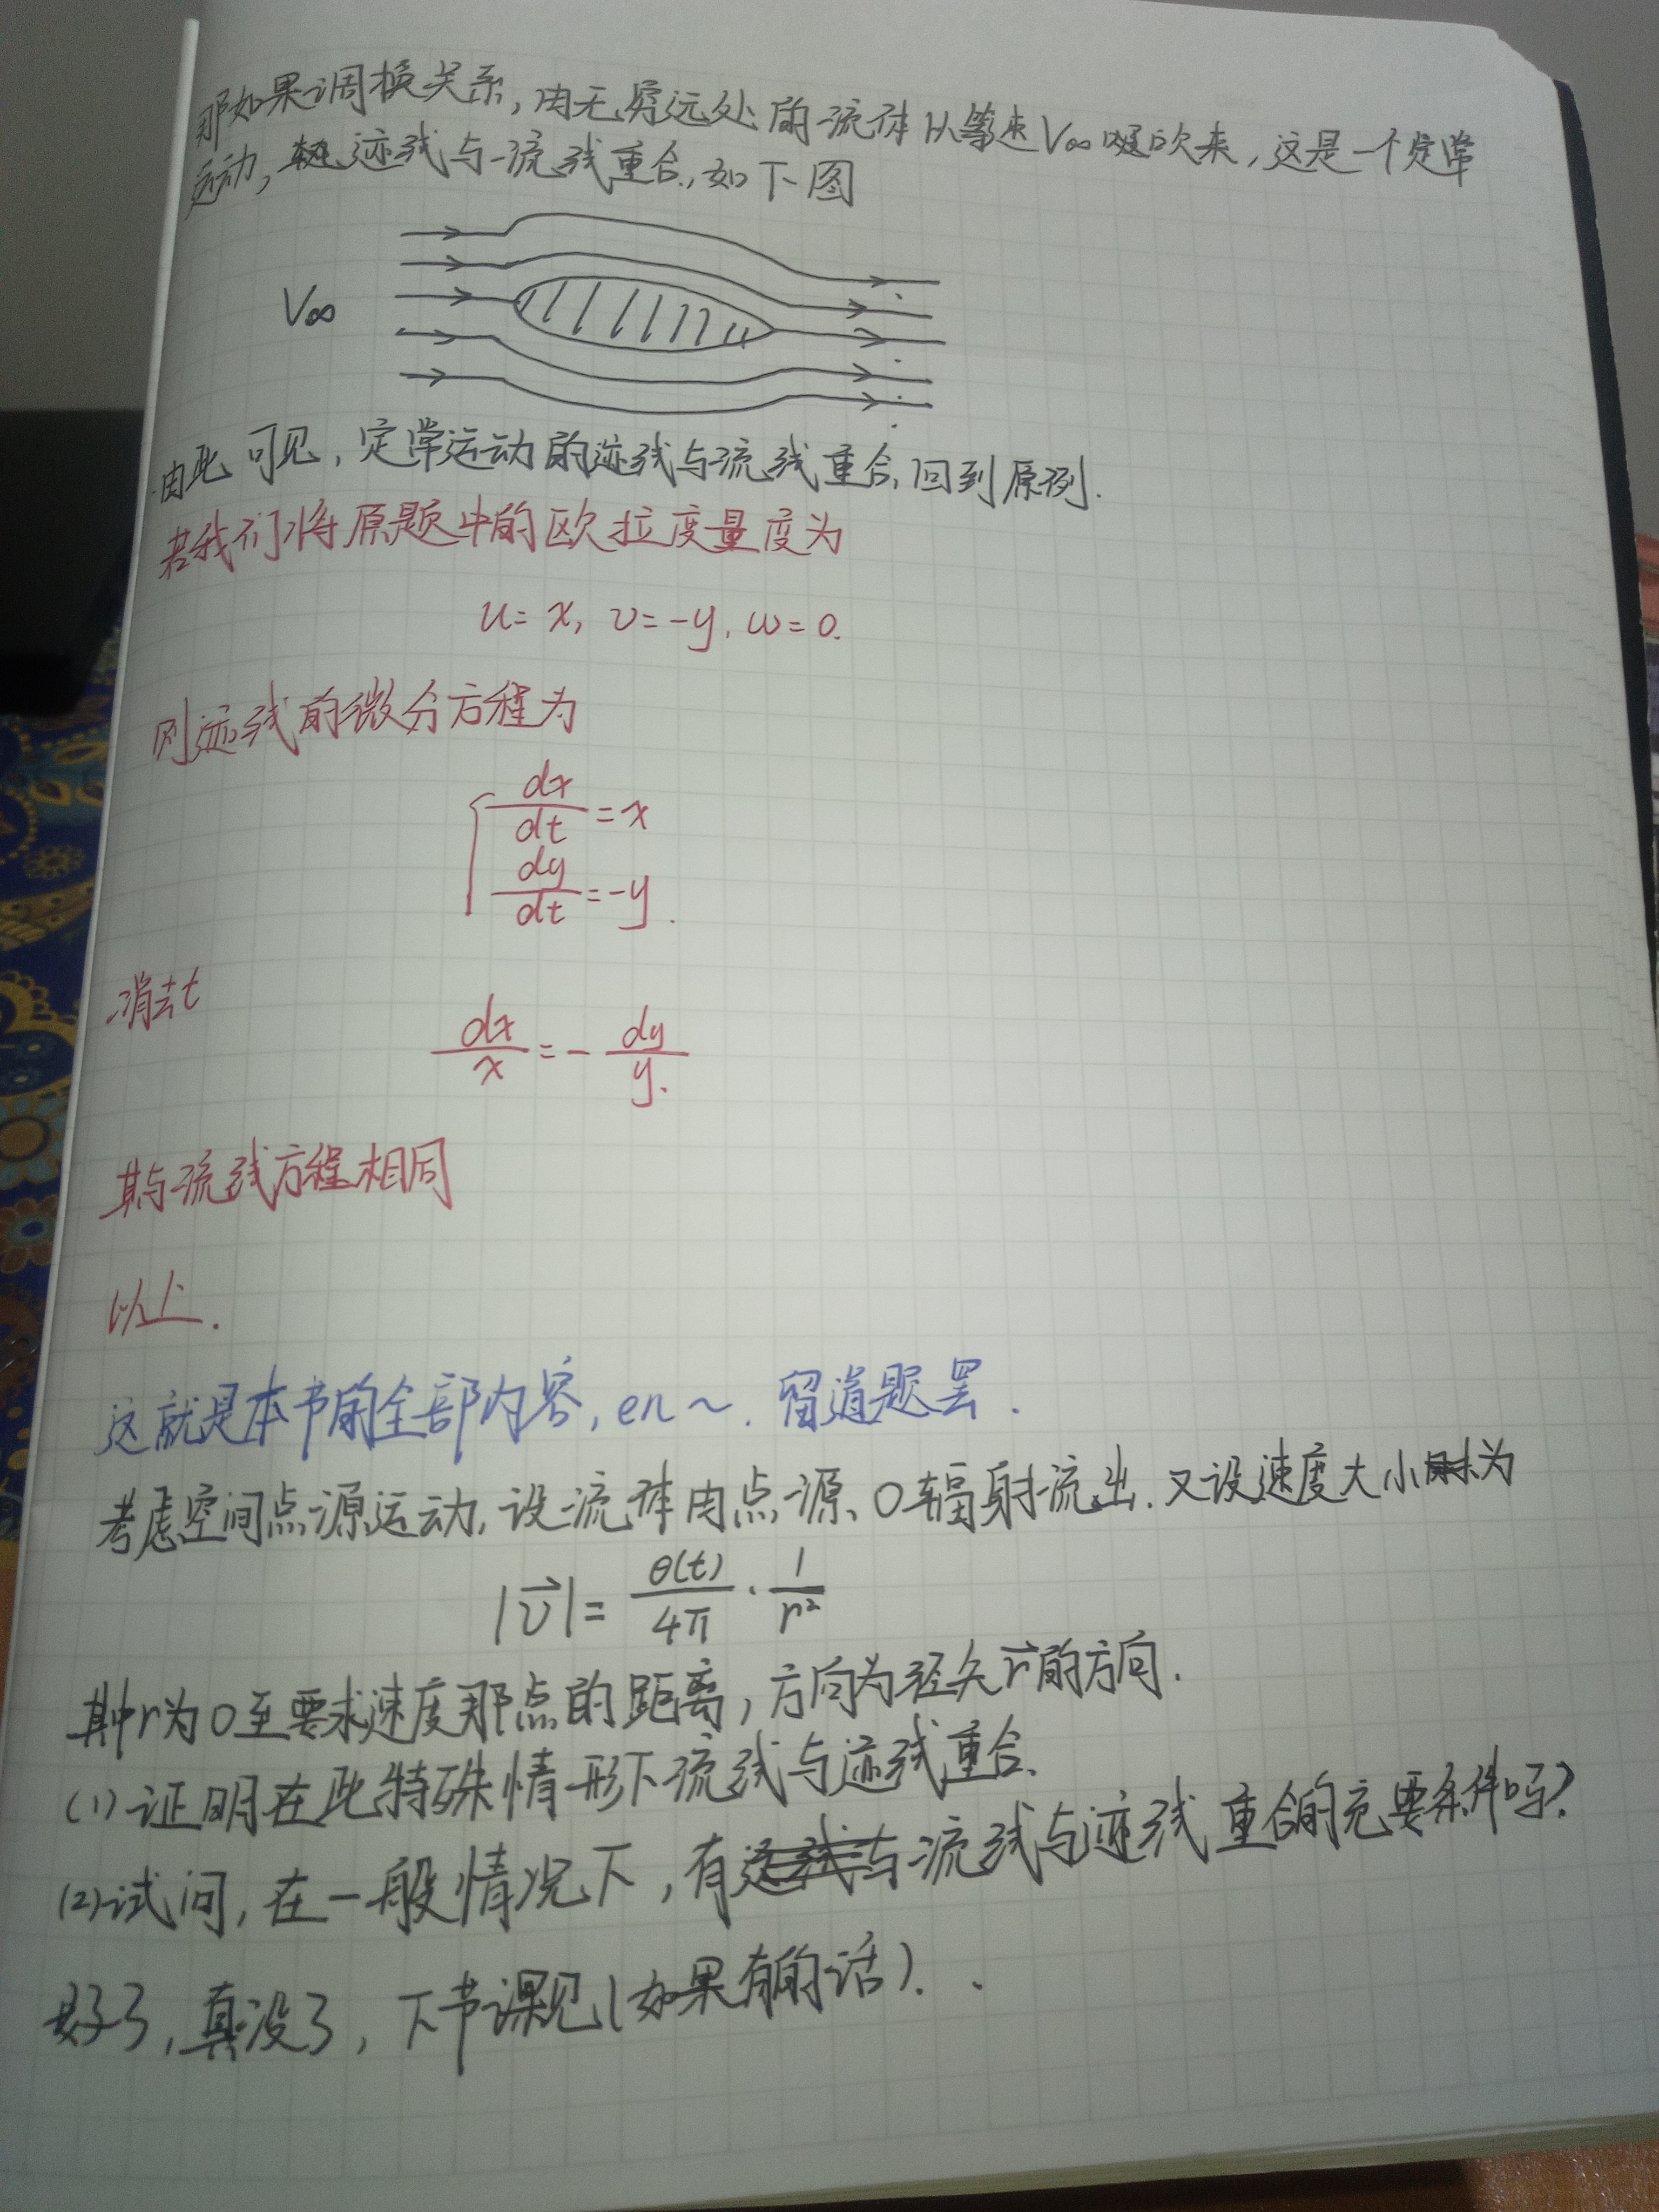 那如果调换关系,由无穷远处的流体以等速V∞吹来,这是一个定常
运动,迹线与流线重合,如下图
V∞
由此可见,定常运动的迹线与流线重合,回到原例.
若我们将原题中的欧拉度量度为
u=x, v=-y, w=0.
则迹线的微分方程为
dx/dt=x
dy/dt=-y.
消去t
dx/x=-dy/y.
其与流线方程相同
以上.
这就是本书的全部内容,en~.留道题罢.
考虑空间点源运动,设流体由点源O辐射流出.又设速度大小为
|v⃗|=θ(t)/4π·1/r²
其中r为O至要求速度那点的距离,方向为径矢r⃗的方向.
(1)证明在此特殊情形下流线与迹线重合.
(2)试问,在一般情况下,有流线与迹线重合的充要条件吗?
好了,真没了,下节课见(如果有的话).